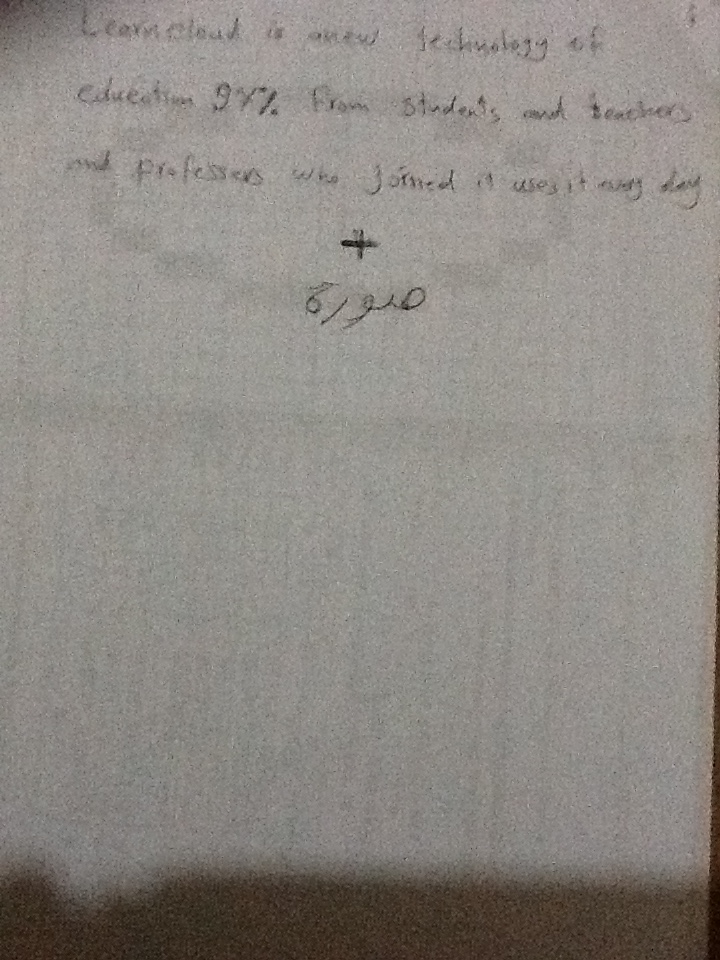 Learncloud is a new technology of
education 97% from students and teachers
and professers who joined it uses it every day
+
صورة